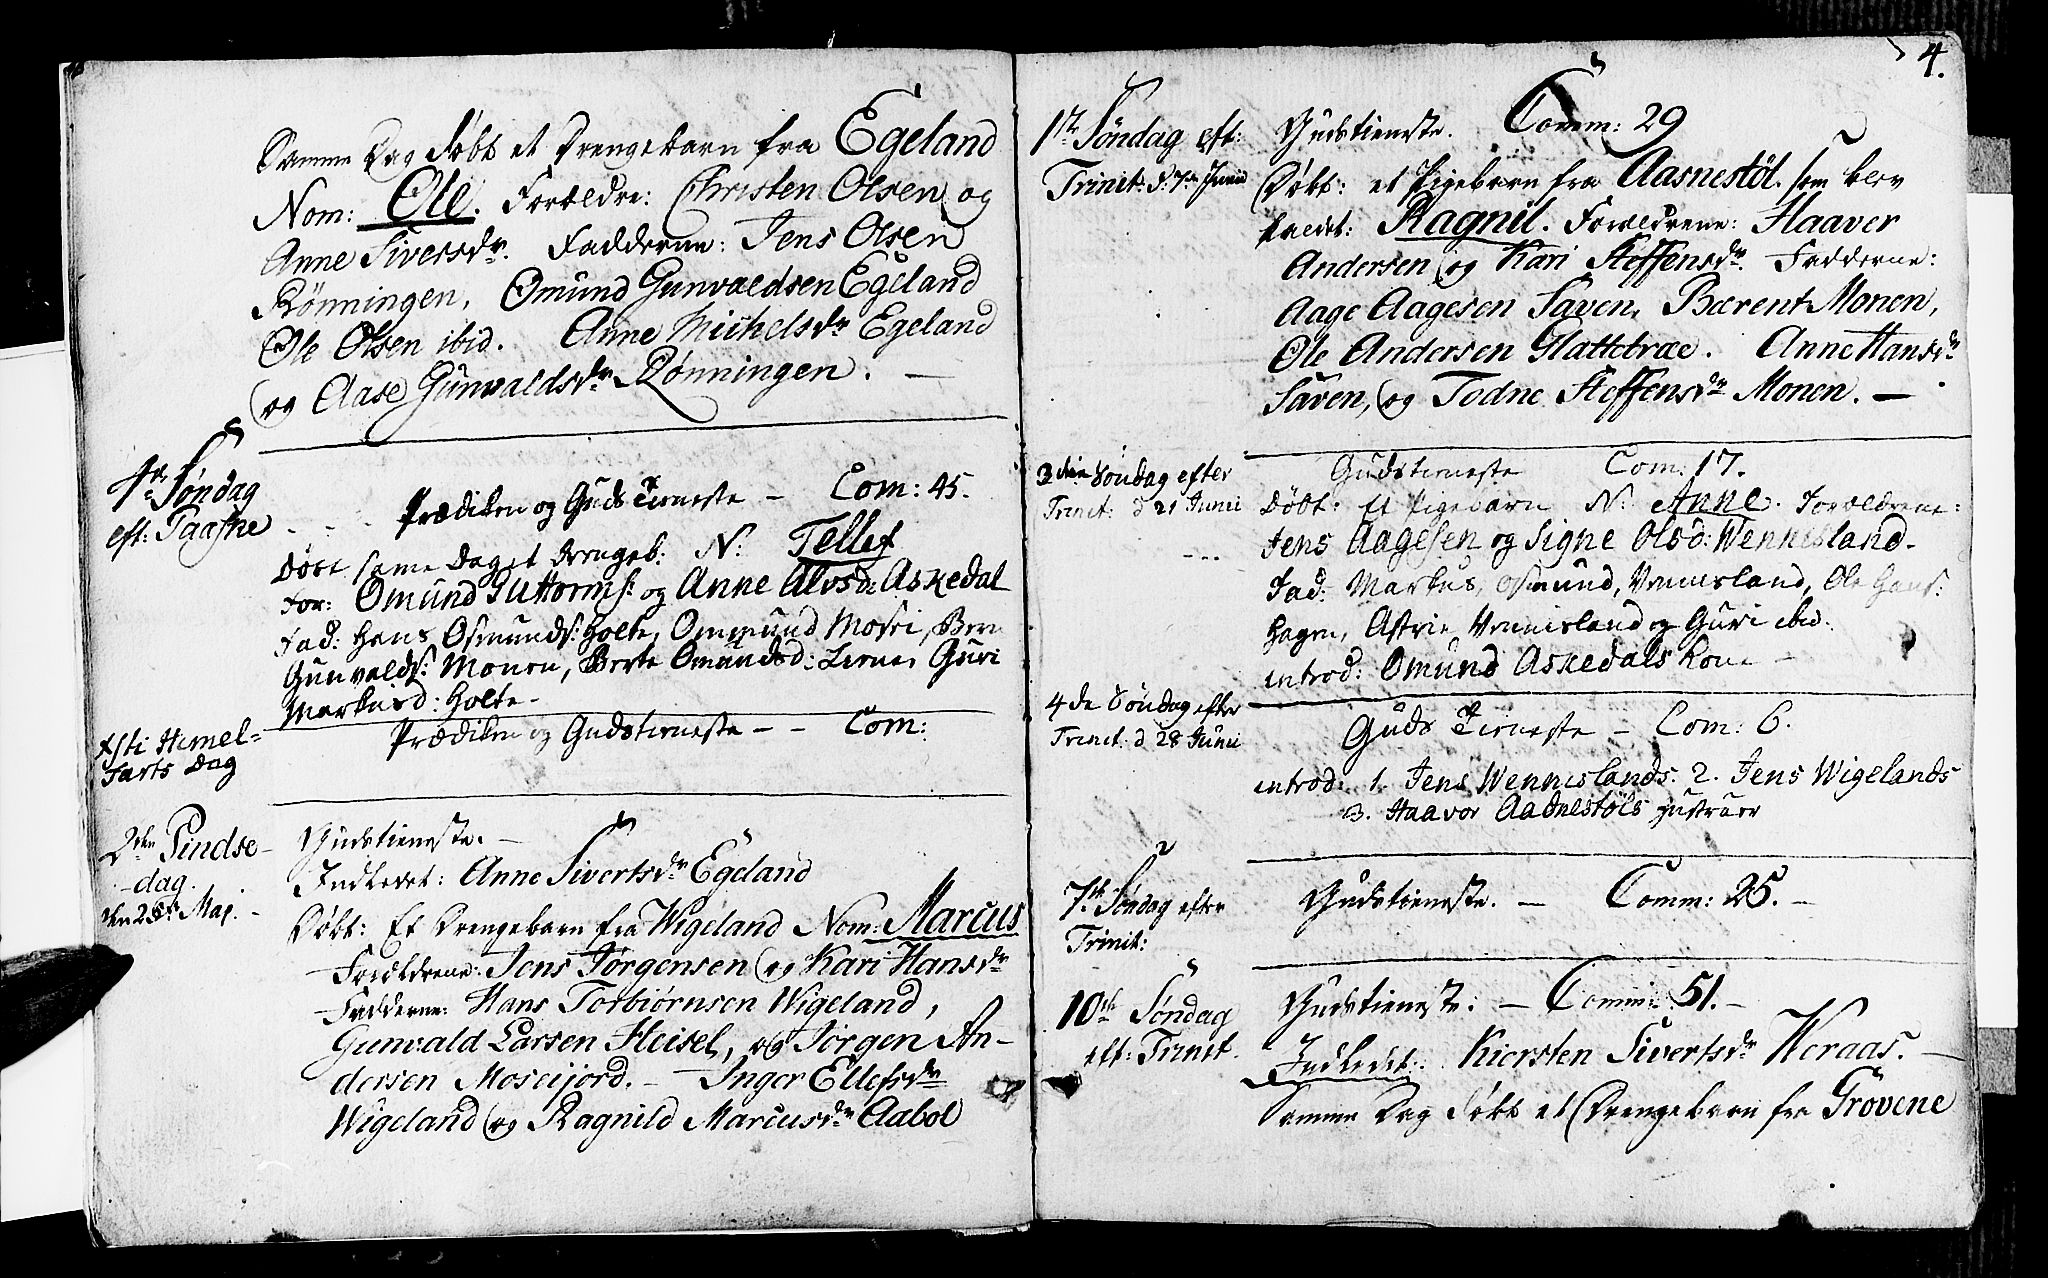 Samme Dag Døbt et Drengebarn fra Egeland
Nom: Ole. Forældre: Christen Olsen og
Anne Siversdr. Fadderne: Jens Olsen
Rønningen, Omund Gunvaldsen Egeland
Ole Olsen ibid. Anne Michelsdr Egeland
og Aase Gunvaldsdr Rønningen. —
4de Søndag
eft: Paaske
Prædiken og Guds Tieneste — Com: 45.
Døbt same Dag et Drengeb: N: Tellef
For: Omund Guttorms: og Anne Alvsd: Askedal
Fad: Hans Osmunds: Holte, Ommund Mosei,
Gunvalds: Monen, Berte Omundsd: Guri
Markusd: Holte —
Xsti Himel=
farts Dag
Prædiken og Gudstieneste — — Com:
2den Pindse-
-dag.
den 25de Maj. -
Gudstieneste. —
Indledet: Anne Sivertsdr Egeland
Døbt: Et Drengebarn fra Wigeland Nom: Marcus
Forældrene: Jens Jørgensen og Kari Hansdr
Fadderne: Hans Torbiørnsen Wigeland,
Gunvald Larsen Heisel, og Jørgen An-
dersen Moseijord. — Inger Ellefsdr
Wigeland og Ragnild Marcusdr Aabol
4.
1ste Søndag eft:
Trinit: d. 7de Junii
Gudstieneste. Comm: 29
Døbt: et Pigebarn fra Aasnestøl. som blev
kaldet: Ragnil. Forældrene: Haaver
Andersen og Kari Steffensdr. Fadderne:
Aage Aagesen Saven, Bærent Monen,
Ole Andersen Flattebræe. Anne Hansdr
Saven, og Todne Steffensdr Monen. —
3die Søndag efter
Trinit: d 21 Junii
Gudstieneste Com: 17.
Døbt: Et Pigebarn N: Anne. Forældrene:
Jens Aagesen og Signe Olsd: Wennisland.
Fad: Markus, Osmund, Vennisland, Ole Hans:
Hagen, Astrie Vennisland og Guri ibid.
introd: Omund Askedals Kone —
4de Søndag efter
Trinit: d 28 Junii
Guds Tieneste — Com: 6.
introd: 1. Jens Wennislands. 2. Jens Wigelands
3. Haavor Aadnestøls Hustruer
7de Søndag efter
Trinit:
Gudstieneste. — Comm: 25. —
10de Søndag
eft: Trinit.
Gudstieneste: — Comm: 51. —
Indledet: Kiersten Sivertsdr Weraas. —
Samme Dag døbt et Drengebarn fra Grovene